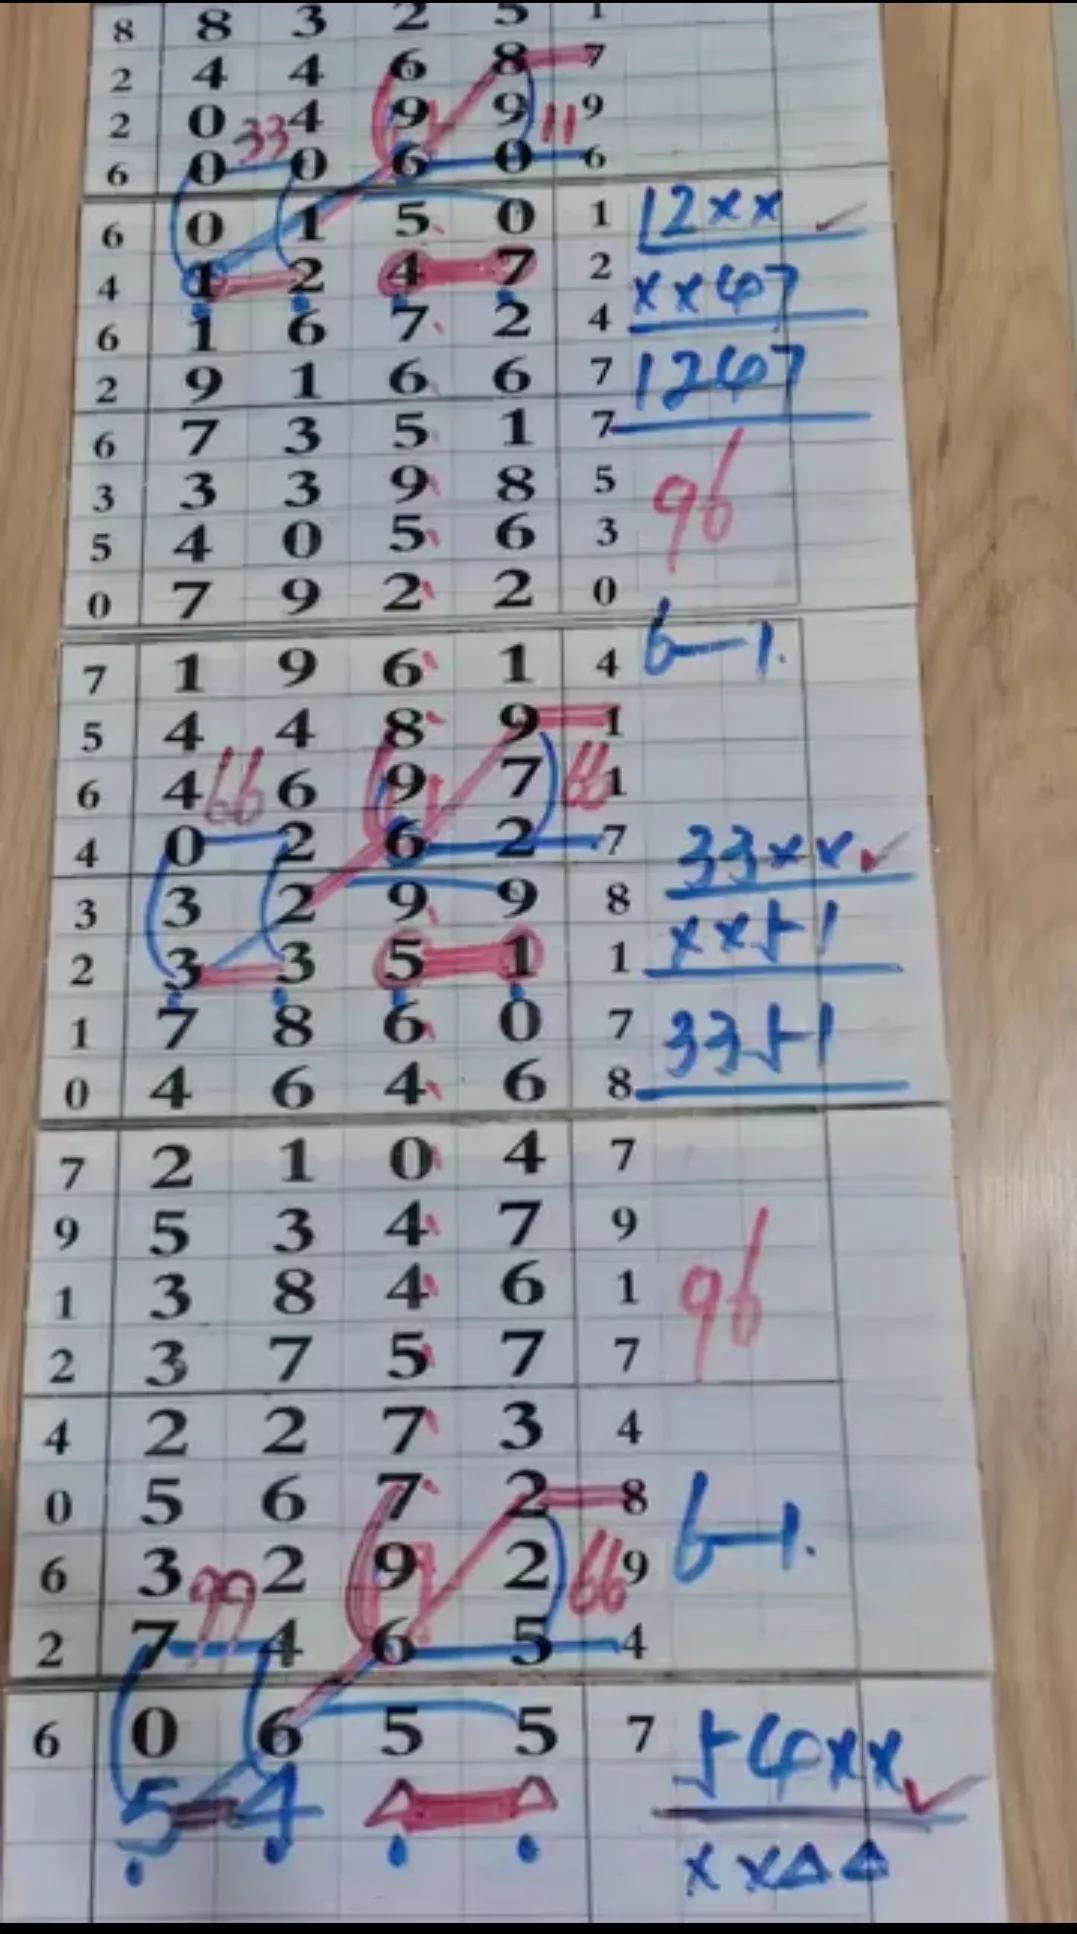 8 8 3 2 5 1
2 4 4 6 8 7
2 0 4 9 9 9
33 11
6 0 0 6 0 6
6 0 1 5 0 1 12xx ✓
4 1 2 4 7 2 xx47
6 1 6 7 2 4
2 9 1 6 6 7 1247
6 7 3 5 1 7
3 3 3 9 8 5 96
5 4 0 5 6 3
0 7 9 2 2 0
7 1 9 6 1 4 6—1.
5 4 4 8 9 1
66 66
6 4 6 9 7 1
4 0 2 6 2 7 33xx ✓
3 3 2 9 9 8
2 3 3 5 1 1 xx51
1 7 8 6 0 7 3351
0 4 6 4 6 8
7 2 1 0 4 7
9 5 3 4 7 9
1 3 8 4 6 1 96
2 3 7 5 7 7
4 2 2 7 3 4
0 5 6 7 2 8 6—1.
6 3 2 9 2 9
99 66
2 7 4 6 5 4
6 0 6 5 5 7 54xx ✓
5 4 △ △
xx△△